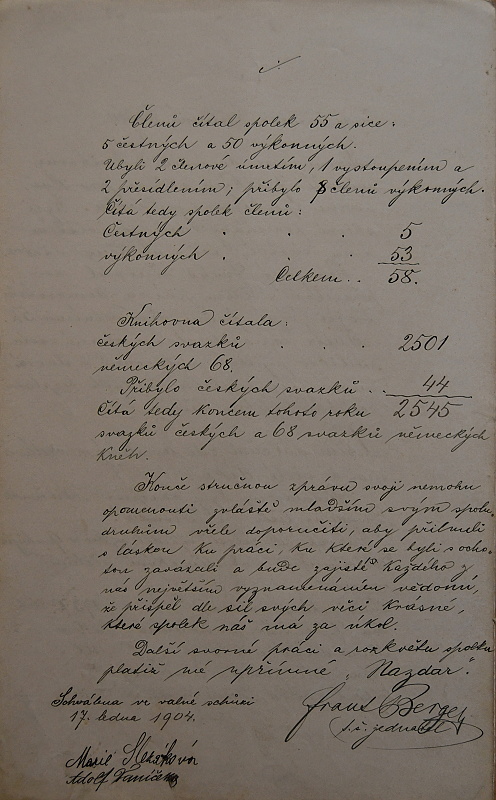 Členů čítal spolek 55 a sice:
5 čestných a 50 výkonných.
Ubyli 2 členové úmrtím, 1 vystoupením a
2 přesídlením; přibylo 8 členů výkonných.
Čítá tedy spolek členů:
Čestných . . . 5
výkonných . . . 53
Celkem . . 58.
Knihovna čítala:
českých svazků . . . 2501
německých 68.
Přibylo českých svazků . . 44
Čítá tedy koncem tohoto roku 2545
svazků českých a 68 svazků německých
knih.
Konče stručnou zprávu svoji nemohu
opomenouti zvláště mladším svým spolu-
druhům vřele doporučiti, aby přilnuli
s láskou ku práci, ku které se byli s ocho-
tou zavázali a bude zajisté každého z
nás největším vyznamenáním vědomí,
že přispěl dle sil svých věci krásné,
které spolek náš má za úkol.
Další svorné práci a rozkvětu spolku
platiž mé upřímné „Nazdar".
Schválena ve valné schůzi
17. ledna 1904.
Franz Berger
t. č. jednatel
Marie Slezáková
Adolf